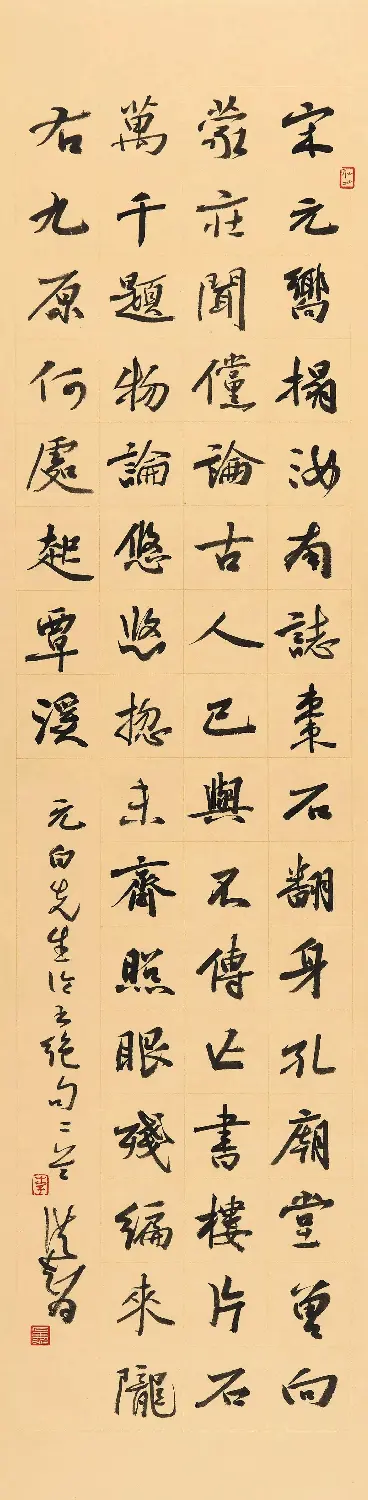 宋元嚮搨汝南誌棗石翻身孔廟堂曾向
蒙莊聞儻論古人已與不傳亡書樓片石
萬千題物論悠悠揔未齊照眼殘編來隴
右九原何處起覃溪
元白先生論書絕句二首